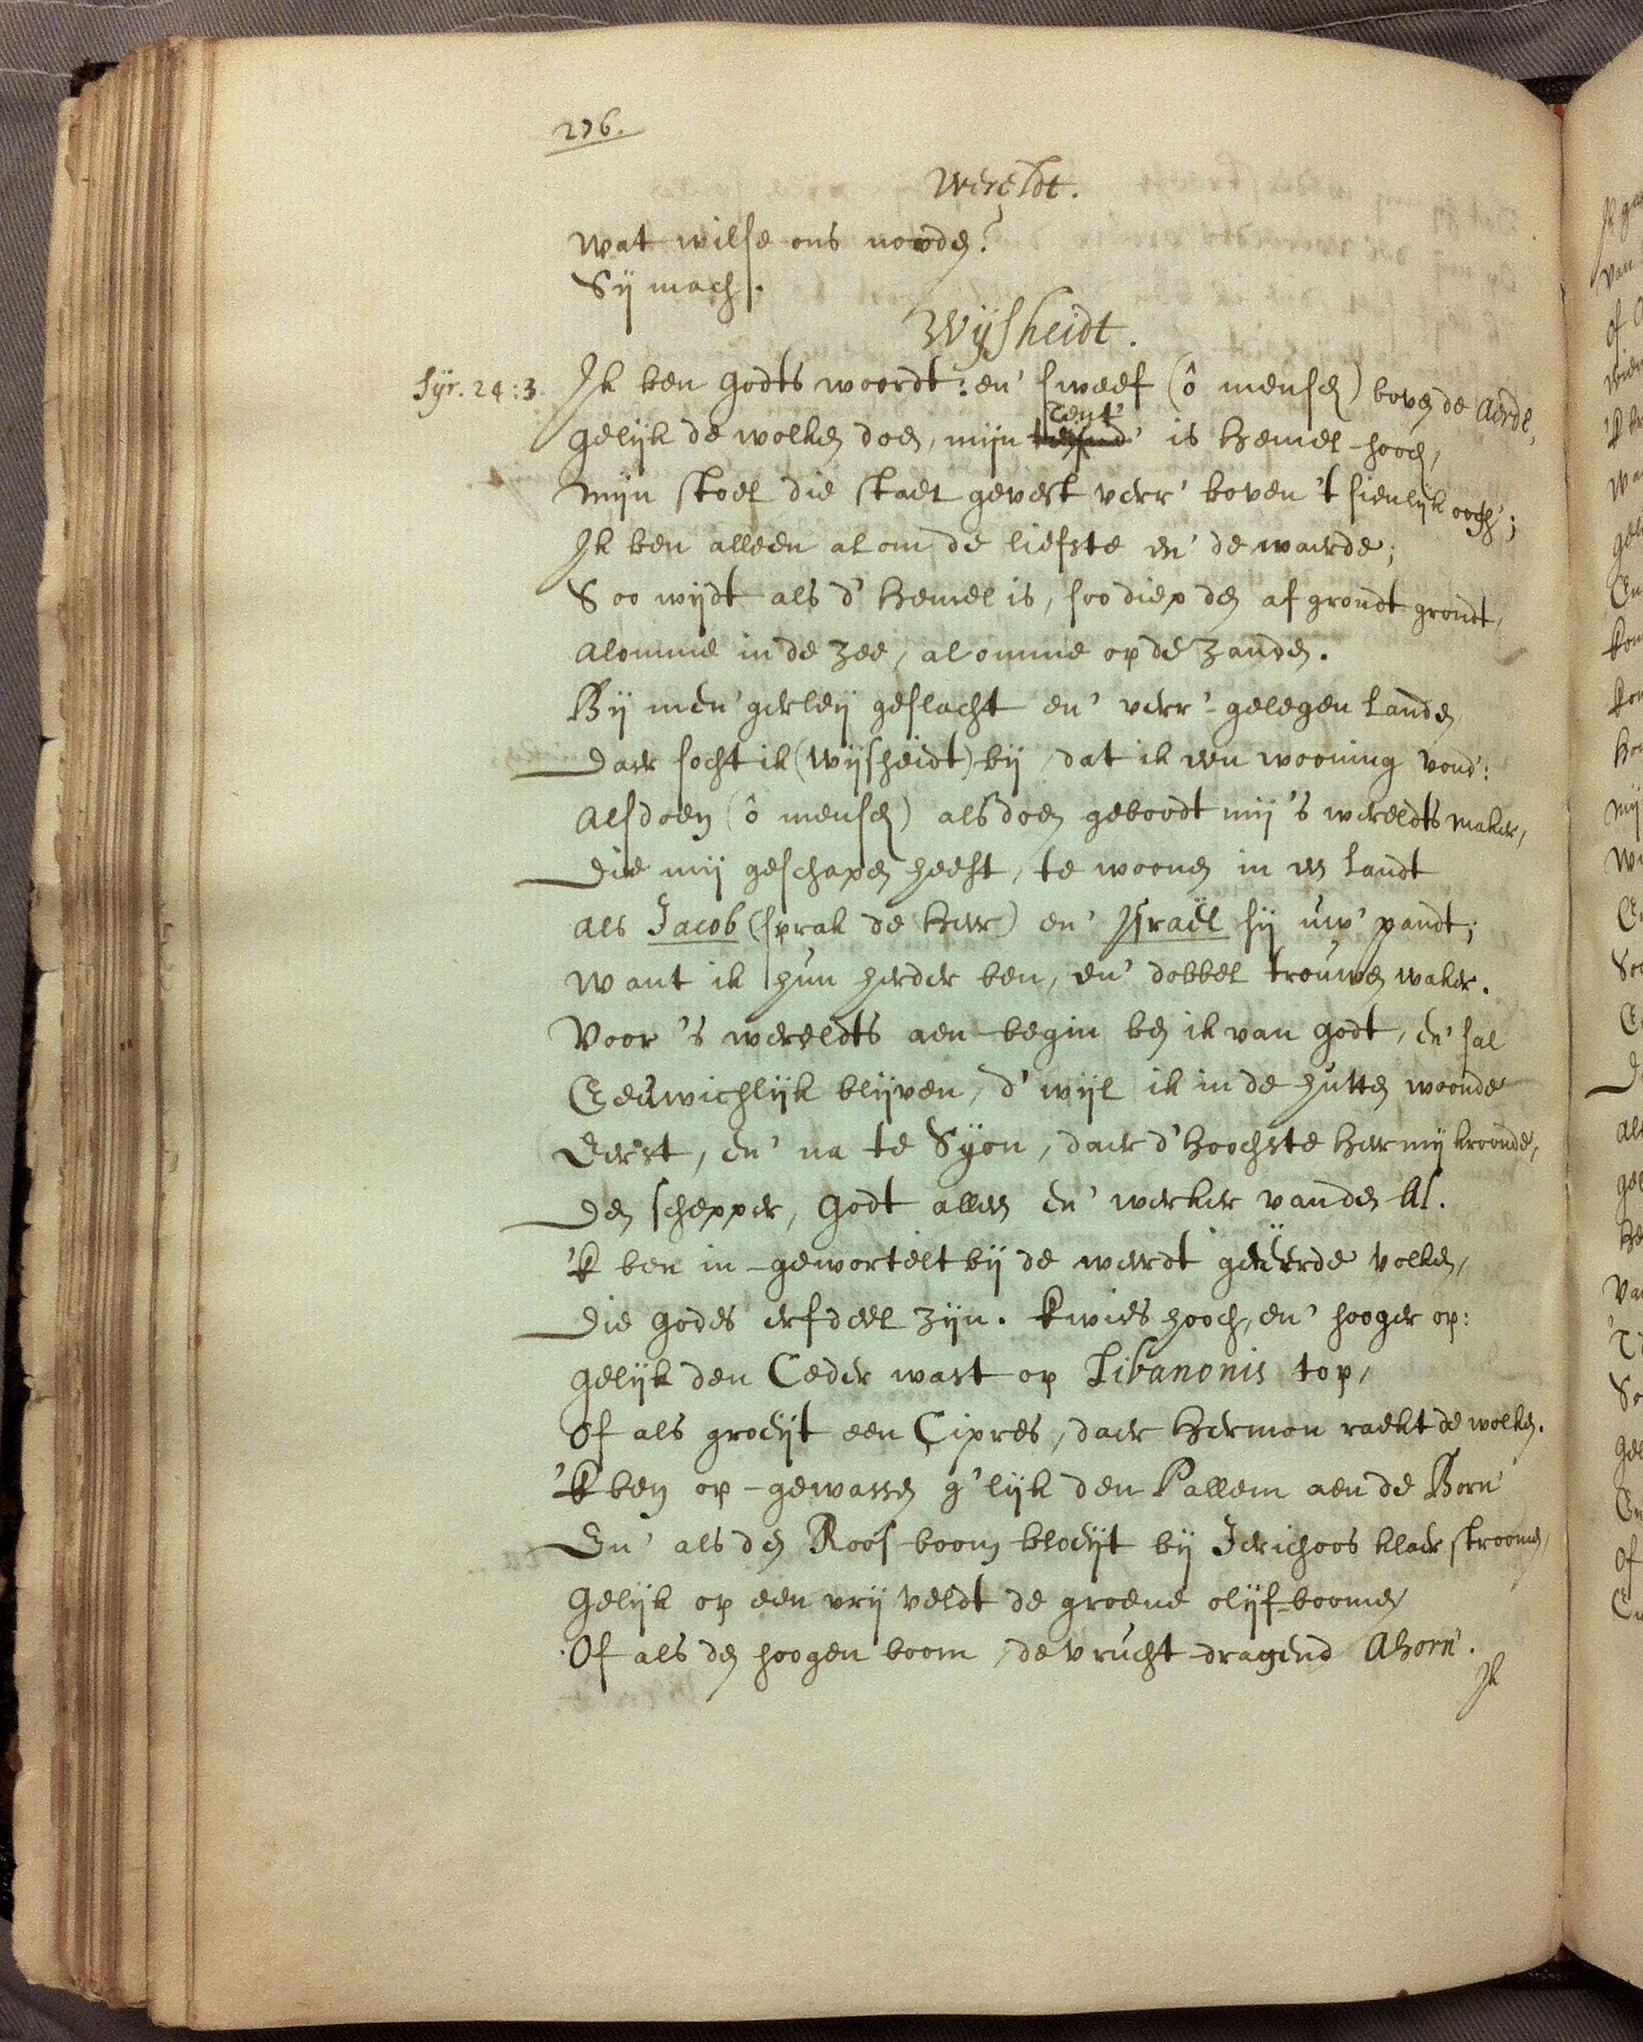 276.
Wereldt.
Wat wilse ons nooden?
Sij mach.
Wijsheidt.
Syr. 24:3. Ik ben Godts woordt: en' sweef (ô mensen) boven de Aerde,
Gelijk de wolken doen, mijn tent' is Hemel-hooch,
Mijn stoel die staet gevest verr' boven 't sienlijk ooch;
Ik ben alleen alom de liefste en' de waerde;
Soo wijdt als d' Hemel is, soo diep den afgrondt grondt,
Alomme in de Zee, alomme op de Zanden.
Bij men'gerleij geslacht en' verr'-gelegen Landen
Daer socht ik (Wijsheidt) bij, dat ik een wooning vond':
Alsdoen (ô mensen) alsdoen geboodt mij 's wereldts maker,
Die mij geschapen heeft, te woonen in en Landt
Als Jacob (sprak de Heer) en' Israël sij uw' pandt;
Want ik hun herder ben, en' dobbel trouwen waker.
Voor 's wereldts aen-begin ben ik van Godt, en' sal
Eeuwichlijk blijven, d'wijl ik in de hutten woonde
Eerst, en' na te Syon, daer d'Hoochste Heer mij kroonde,
Den schepper, Godt alleen en' werker van den Al.
'K ben in-gewortelt bij de weerdt geëerde volken,
Die Godes erfdeel zijn. K wies hooch, en' hooger op:
Gelijk den Ceder wast op Libanonis top,
Of als groeijt een Cipres, daer Hermon raekt de wolken.
'K ben op-gewassen g'lijk den Pallem aen de Born'
En' als den Roos-boom bloeijt bij Ierichoos klaer stroomen,
Gelijk op een vrij veldt de groene olijf-boomen
Of als den hoogen boom, de vrucht-dragend Ahorn'.
Ik